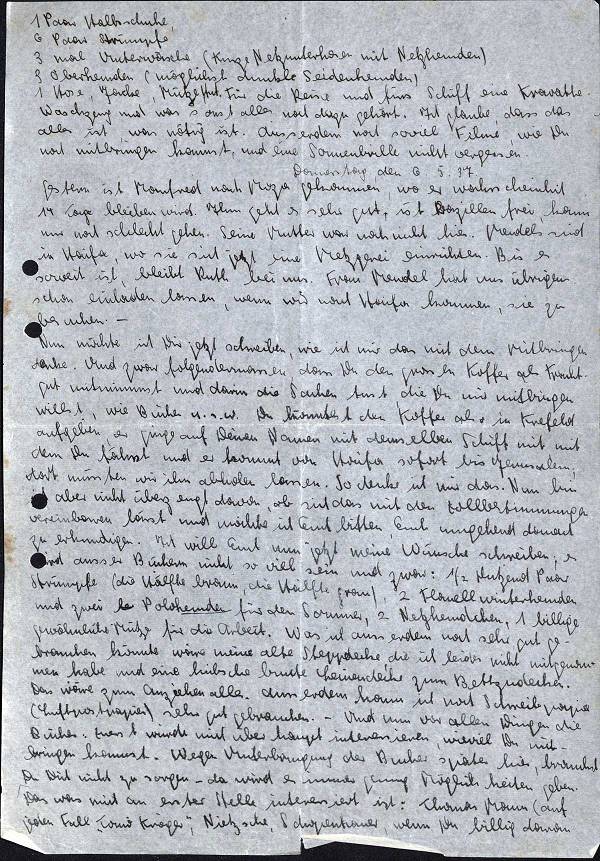 1 Paar Halbschuhe,
6 Paar Strümpfe,
3 mal Unterwäsche (Kurze Netzunterhosen mit Netzhemden)
3 Oberhemden (möglichst dunkle Seidenhemden)
1 Hose, Jacke, Mütze. Für die Reise und fürs Schiff eine Kravatte.
Waschzeug und was sonst alles noch dazu gehört. Ich glaube, dass das
alles ist, was nötig ist. Ausserdem noch soviel Filme, wie Du
noch mitbringen kannst, und eine Sonnenbrille nicht vergessen.
Donnerstag, den 6. 5. 37.
Gestern ist Manfred nach Moza gekommen, wo er wahrscheinlich
14 Tage bleiben wird. Ihm geht es sehr gut, ist Bazillen frei, kann
nur noch schlecht gehen. Seine Mutter war noch nicht hier. Mendels sind
in Haifa, wo sie sich jetzt eine Metzgerei einrichten. Bis es
soweit ist, bleibt Ruth bei uns. Frau Mendel hat uns übrigens
schon einladen lassen, wenn wir nach Haifa kommen, sie zu
besuchen. —
Nun möchte ich Dir jetzt schreiben, wie ich mir das mit dem Mitbringen
denke. Und zwar folgendermassen dass Du den grossen Koffer als Fracht-
gut mitnimmst und darin die Sachen tust die Du mir mitbringen
willst, wie Bücher u.s.w. Du könntest den Koffer also in Krefeld
aufgeben, er ginge auf Deinen Namen mit demselben Schiff mit mit
dem Du fährst und er kommt von Haifa sofort bis Jerusalem,
dort müssten wir ihn abholen lassen. So denke ich mir das. Nun bin
ich aber nicht überzeugt davon, ob sich das mit den Zollbestimmungen
vereinbaren lässt und möchte ich Euch bitten, Euch umgehend danach
zu erkundigen. Ich will Euch nun jetzt meine Wünsche schreiben, es
wird ausser Büchern nicht so viel sein und zwar: 1/2 Dutzend Paar
Strümpfe (die Hälfte braun, die Hälfte grau), 2 Flanellwinterhemden
und zwei Polohemden für den Sommer, 2 Netzhemdchen, 1 billige
gewöhnliche Mütze für die Arbeit. Was ich ausserdem noch sehr gut ge-
brauchen könnte wäre meine alte Steppdecke die ich leider nicht mitgenom-
men habe und eine hübsche bunte Leinendecke zum Bettzudecken.
Das wäre zum Anziehen alles. Ausserdem kann ich noch Schreibpapier
(Luftpostpapier) sehr gut gebrauchen. — Und nun vor allen Dingen die
Bücher. Zuerst würde mich überhaupt interessieren, wieviel Du mit-
bringen kannst. Wegen Unterbringung der Bücher später hier, brauchst
Du Dich nicht zu sorgen – da wird es immer genug Möglichkeiten geben.
Das was mich an erster Stelle interessiert ist: Thomas Mann (auf
jeden Fall „Tonio Kröger“, Nietzsche, Schopenhauer, wenn Du billig daran